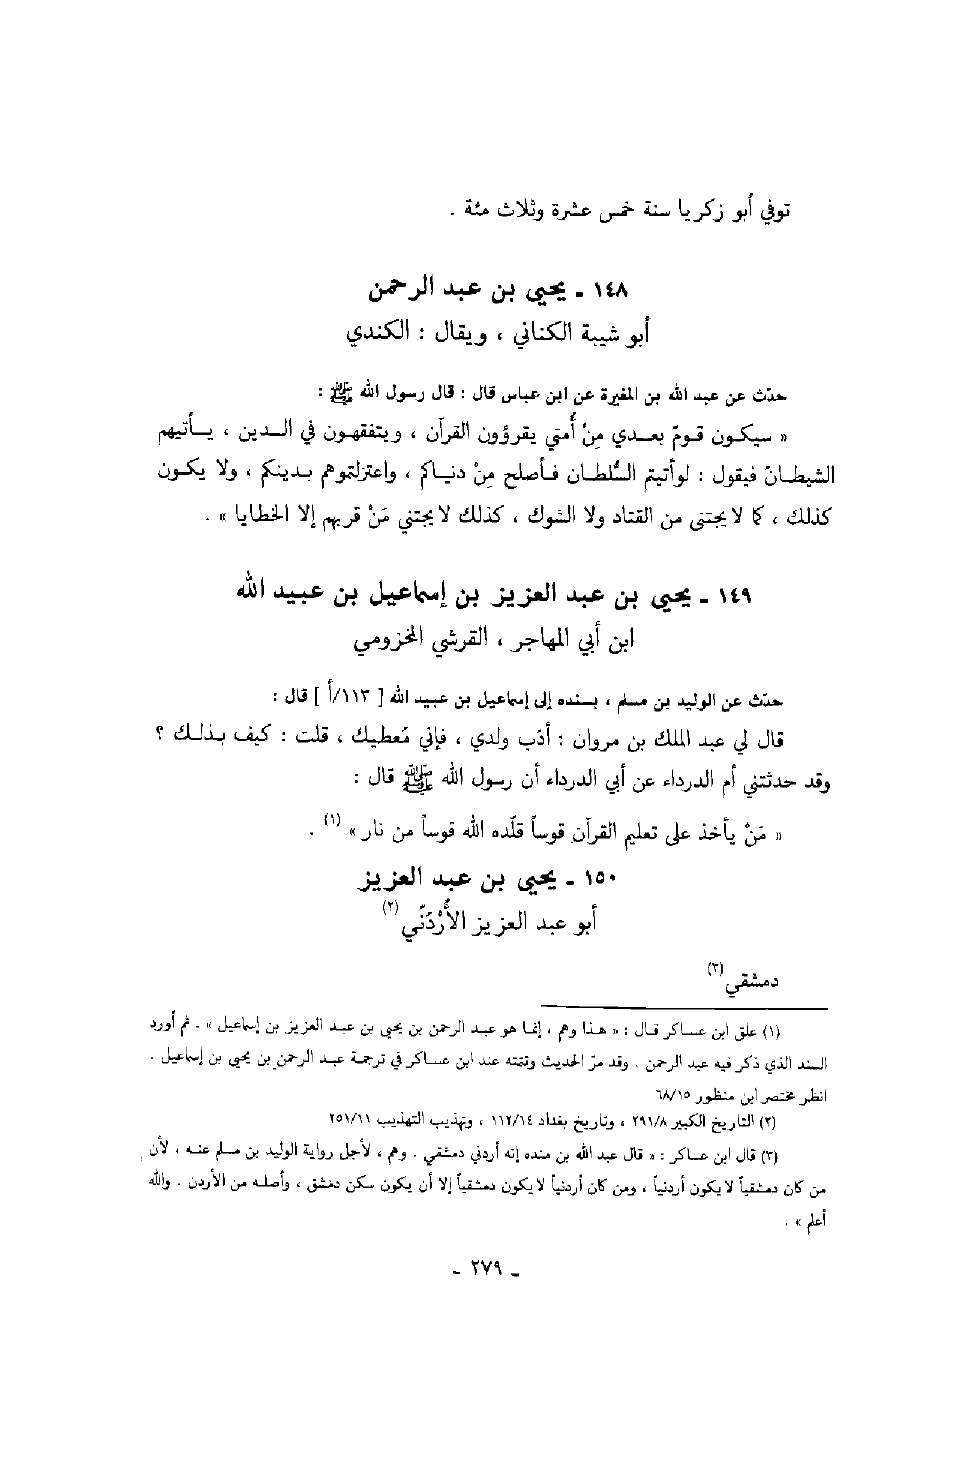 توفي أبو زكريا سنة خمس عشرة وثلاث مئة .
١٤٨ ـ يحيى بن عبد الرحمن
أبو شيبة الكناني ، ويقال : الكندي
حدّث عن عبد الله بن المغيرة عن ابن عباس قال : قال رسول الله ﷺ :
« سيكون قومٌ بعدي مِنْ أُمتي يقرؤون القرآن ، ويتفقهون في الدين ، يأتيهم
الشيطانُ فيقول : لوأتيتم السُّلطان فأصلح مِنْ دنياكم ، واعتزلتموهم بدينكم ، ولا يكون
كذلك ، كما لا يجتنى من القتاد ولا الشوك ، كذلك لا يجتني مَنْ قربهم إلا الخطايا » .
١٤٩ ـ يحيى بن عبد العزيز بن إسماعيل بن عبيد الله
ابن أبي المهاجر ، القرشي المخزومي
حدّث عن الوليد بن مسلم ، بسنده إلى إسماعيل بن عبيد الله [ ١١٣/أ ] قال :
قال لي عبد الملك بن مروان : أدّب ولدي ، فإني مُعطيك ، قلت : كيف بذلك ؟
وقد حدثتني أم الدرداء عن أبي الدرداء أن رسول الله ﷺ قال :
« مَنْ يأخذ على تعليم القرآن قوساً قلّده الله قوساً من نار » (١) .
١٥٠ ـ يحيى بن عبد العزيز
أبو عبد العزيز الأُرْدَنّي (٢)
دمشقي (٣)
(١) علق ابن عساكر قال : « هذا وهم ، إنما هو عبد الرحمن بن يحيى بن عبد العزيز بن إسماعيل » . ثم أورد
السند الذي ذكر فيه عبد الرحمن . وقد مرّ الحديث وقتته عند ابن عساكر في ترجمة عبد الرحمن بن يحيى بن إسماعيل .
انظر مختصر ابن منظور ٦٨/١٥
(٢) التاريخ الكبير ٢٩١/٨ ، وتاريخ بغداد ١١٢/١٤ ، وتهذيب التهذيب ٢٥١/١١
(٣) قال ابن عساكر : « قال عبد الله بن منده إنه أردني دمشقي . وهم ، لأجل رواية الوليد بن مسلم عنه ، لأن
من كان دمشقياً لا يكون أردنياً ، ومن كان أردنياً لا يكون دمشقياً إلا أن يكون سكن دمشق ، وأصله من الأردن . والله
أعلم » .
ـ ٢٧٩ ـ